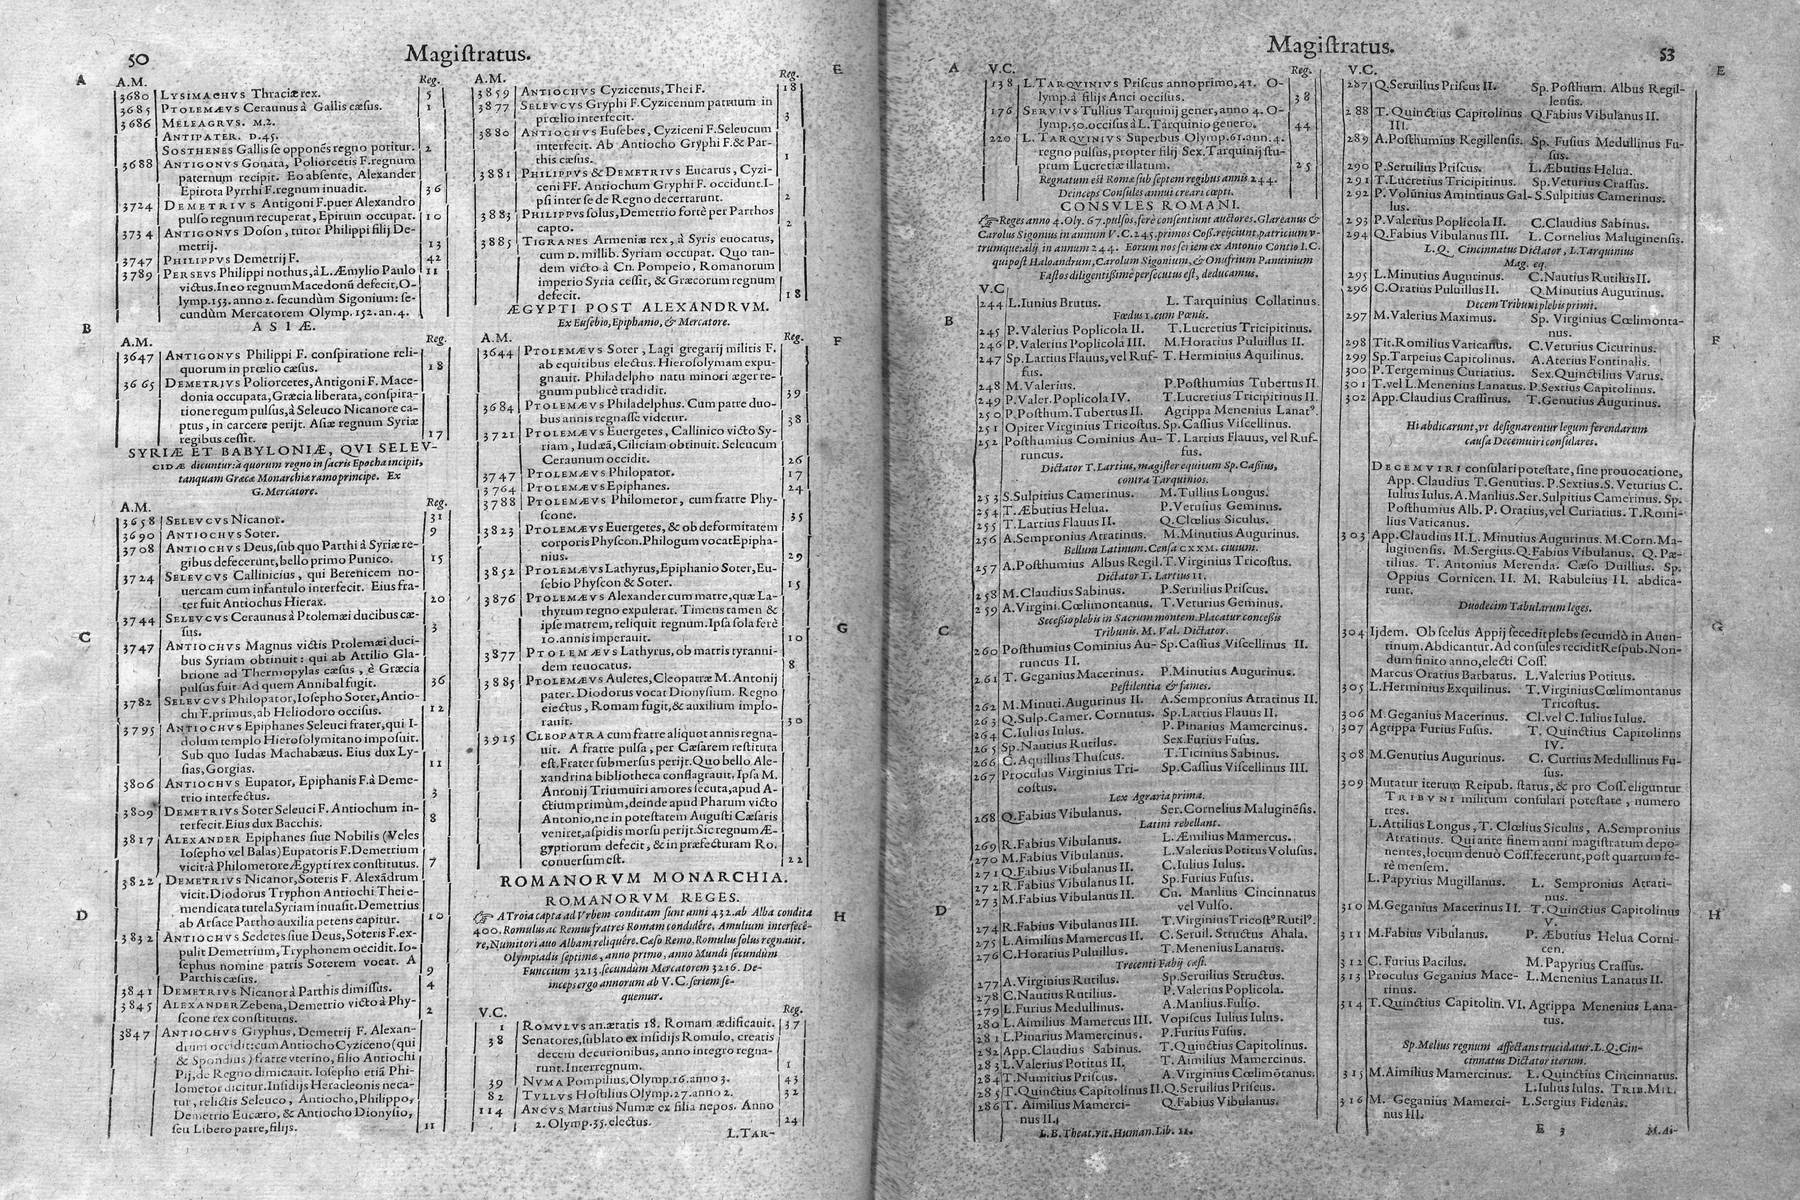 50
Magiſtratus.
A
A.M.
Reg.
3680 LYSIMACHVS Thraciæ rex. 5
3685 PTOLEMÆVS Ceraunus à Gallis cæſus. 1
3686 MELEAGRVS. M.2.
ANTIPATER. D.45.
SOSTHENES Galliſe opponēs regno potitur. 2
3688 ANTIGONVS Gonata, Poliorcetis F.regnum
paternum recipit. Eo abſente, Alexander
Epirota Pyrrhi F.regnum inuadit. 36
3724 DEMETRIVS Antigoni F.puer Alexandro
pulſo regnum recuperat, Epirum occupat. 10
3734 ANTIGONVS Doſon, tutor Philippi filij De-
metrij. 13
3747 PHILIPPVS Demetrij F. 42
3789 PERSEVS Philippi nothus, à L.Æmylio Paulo 11
victus.In eo regnum Macedonū defecit,O-
lymp.153. anno 2. ſecundùm Sigonium: ſe-
cundùm Mercatorem Olymp.152.an.4.
B
ASIÆ.
A.M.
Reg.
3647 ANTIGONVS Philippi F. conſpiratione reli-
quorum in prœlio cæſus. 18
3665 DEMETRIVS Poliorcetes, Antigoni F. Mace-
donia occupata, Græcia liberata, conſpira-
tione regum pulſus, à Seleuco Nicanore ca-
ptus, in carcere perijt. Aſiæ regnum Syriæ
regibus ceſſit. 17
SYRIÆ ET BABYLONIÆ, QVI SELEV-
CIDÆ dicuntur: à quorum regno in ſacris Epocha incipit,
tanquam Græcæ Monarchiæ ramo principe. Ex
G.Mercatore.
A.M.
Reg.
3658 SELEVCVS Nicanor. 31
3690 ANTIOCHVS Soter. 9
3708 ANTIOCHVS Deus, ſub quo Parthi à Syriæ re-
gibus defecerunt, bello primo Punico. 15
3724 SELEVCVS Callinicius, qui Berenicem no-
uercam cum infantulo interfecit. Eius fra-
ter fuit Antiochus Hierax. 20
3744 SELEVCVS Ceraunus à Ptolemæi ducibus cæ-
ſus. 3
C
3747 ANTIOCHVS Magnus victis Ptolemæi duci-
bus Syriam obtinuit: qui ab Attilio Gla-
brione ad Thermopylas cæſus, è Græcia
pulſus fuit. Ad quem Annibal fugit. 36
3782 SELEVCVS Philopator, Ioſepho Soter, Antio-
chi F.primus, ab Heliodoro occiſus. 12
3795 ANTIOCHVS Epiphanes Seleuci frater, qui I-
dolum templo Hieroſolymitano impoſuit.
Sub quo Iudas Machabæus. Eius dux Ly-
ſias, Gorgias. 11
3806 ANTIOCHVS Eupator, Epiphanis F.à Deme-
trio interfectus. 3
3809 DEMETRIVS Soter Seleuci F. Antiochum in-
terfecit. Eius dux Bacchis. 8
3817 ALEXANDER Epiphanes ſiue Nobilis (Veles
Ioſepho vel Balas) Eupatoris F.Demetrium
vicit: à Philometore Ægypti rex conſtitutus. 7
3822 DEMETRIVS Nicanor, Soteris F. Alexādrum
vicit. Diodorus Tryphon Antiochi Thei e-
mendicata tutela Syriam inuaſit. Demetrius
ab Arſace Partho auxilia petens capitur. 10
D
3832 ANTIOCHVS Sedetes ſiue Deus, Soteris F.ex-
pulit Demetrium, Tryphonem occidit. Io-
ſephus nomine patris Soterem vocat. A
Parthis cæſus. 9
3841 DEMETRIVS Nicanor à Parthis dimiſſus. 4
3845 ALEXANDER Zebena, Demetrio victo à Phy-
ſcone rex conſtitutus. 2
3847 ANTIOCHVS Gryphus, Demetrij F. Alexan-
drum occidit: cum Antiocho Cyziceno (qui
& Spondius) fratre vterino, filio Antiochi
Pij, de Regno dimicauit. Ioſepho etiā Phi-
lometor dicitur. Inſidijs Heracleonis neca-
tur, relictis Seleuco, Antiocho, Philippo,
Demetrio Eucæro, & Antiocho Dionyſio,
ſeu Libero patre, filijs. 11
E
A.M.
Reg.
3859 ANTIOCHVS Cyzicenus, Thei F. 18
3877 SELEVCVS Gryphi F. Cyzicenum patruum in
prœlio interfecit. 3
3880 ANTIOCHVS Euſebes, Cyziceni F.Seleucum
interfecit. Ab Antiocho Gryphi F.& Par-
this cæſus. 1
3881 PHILIPPVS & DEMETRIVS Eucarus, Cyzi-
ceni FF. Antiochum Gryphi F. occidunt.I-
pſi inter ſe de Regno decertarunt. 2
3883 PHILIPPVS ſolus, Demetrio fortè per Parthos
capto. 2
3885 TIGRANES Armeniæ rex, à Syris euocatus,
cum D. millib. Syriam occupat. Quo tan-
dem victo à Cn. Pompeio, Romanorum
imperio Syria ceſſit, & Græcorum regnum
defecit. 18
ÆGYPTI POST ALEXANDRVM.
Ex Euſebio, Epiphanio, & Mercatore.
F
A.M.
Reg.
3644 PTOLEMÆVS Soter, Lagi gregarij militis F.
ab equitibus electus. Hieroſolymam expu-
gnauit. Philadelpho natu minori æger re-
gnum publicè tradidit. 39
3684 PTOLEMÆVS Philadelphus. Cum patre duo-
bus annis regnaſſe videtur. 38
3721 PTOLEMÆVS Euergetes, Callinico victo Sy-
riam, Iudæā, Ciliciam obtinuit. Seleucum
Ceraunum occidit. 26
3747 PTOLEMÆVS Philopator. 17
3764 PTOLEMÆVS Epiphanes. 24
3788 PTOLEMÆVS Philometor, cum fratre Phy-
ſcone. 35
3823 PTOLEMÆVS Euergetes, & ob deformitatem
corporis Phyſcon. Philogum vocat Epipha-
nius. 29
3852 PTOLEMÆVS Lathyrus, Epiphanio Soter, Eu-
ſebio Phyſcon & Soter. 15
3876 PTOLEMÆVS Alexander cum matre, quæ La-
thyrum regno expulerat. Timens tamen &
ipſe matrem, reliquit regnum. Ipſa ſola ferè
10.annis imperauit. 10
G
3877 PTOLEMÆVS Lathyrus, ob matris tyranni-
dem reuocatus. 8
3885 PTOLEMÆVS Auletes, Cleopatræ M. Antonij
pater. Diodorus vocat Dionyſium. Regno
eiectus, Romam fugit, & auxilium implo-
rauit. 30
3915 CLEOPATRA cum fratre aliquot annis regna-
uit. A fratre pulſa, per Cæſarem reſtituta
eſt. Frater ſubmerſus perijt. Quo bello Ale-
xandrina bibliotheca conflagrauit. Ipſa M.
Antonij Triumuiri amores ſecuta, apud A-
ctium primùm, deinde apud Pharum victo
Antonio, ne in poteſtatem Auguſti Cæſaris
veniret, aſpidis morſu perijt. Sic regnum Æ-
gyptiorum defecit, & in præfecturam Ro.
conuerſum eſt. 22
ROMANORVM MONARCHIA.
ROMANORVM REGES.
H
☞ A Troia capta ad Vrbem conditam ſunt anni 432. ab Alba condita
400. Romulus ac Remus fratres Romam condidêre, Amulium interfecê-
re, Numitori auo Albam reliquêre. Cæſo Remo, Romulus ſolus regnauit.
Olympiadis ſeptimæ, anno primo, anno Mundi ſecundùm
Funccium 3213. ſecundùm Mercatorem 3216. De-
inceps ergo annorum ab V.C. ſeriem ſe-
quemur.
V.C.
Reg.
1 ROMVLVS an.ætatis 18. Romam ædificauit. 37
38 Senatores, ſublato ex inſidijs Romulo, creatis
decem decurionibus, anno integro regna-
runt. Interregnum. 1
39 NVMA Pompilius, Olymp.16.anno 3. 43
82 TVLLVS Hoſtilius Olymp.27.anno 2. 32
114 ANCVS Martius Numæ ex filia nepos. Anno
2. Olymp.35. electus. 24
L.TAR-
Magiſtratus.
53
A
V.C.
Reg.
138 L.TARQVINIVS Priſcus anno primo, 41. O-
lymp. à filijs Anci occiſus. 38
176 SERVIVS Tullius Tarquinij gener, anno 4. O-
lymp.50.occiſus à L.Tarquinio genero. 44
220 L. TARQVINIVS Superbus Olymp.61.ann.4.
regno pulſus, propter filij Sex.Tarquinij ſtu-
prum Lucretiæ illatum. 25
Regnatum eſt Romæ ſub ſeptem regibus annis 244.
Deinceps Conſules annui creari cœpti.
CONSVLES ROMANI.
☞ Reges anno 4. Oly. 67. pulſos, ferè conſentiunt auctores. Glareanus &
Carolus Sigonius in annum V.C.245. primos Coſſ. reijciunt, patricium v-
trumque: alij in annum 244. Eorum nos ſeriem ex Antonio Contio I.C.
qui poſt Haloandrum, Carolum Sigonium, & Onufrium Panuinium
Faſtos diligentiſſimè perſecutus eſt, deducamus.
V.C.
244 L.Iunius Brutus. L. Tarquinius Collatinus.
Fœdus 1. cum Pœnis.
B
245 P.Valerius Poplicola II. T.Lucretius Tricipitinus.
246 P.Valerius Poplicola III. M.Horatius Puluillus II.
247 Sp.Lartius Flauus, vel Ruf- T. Herminius Aquilinus.
fus.
248 M.Valerius. P.Poſthumius Tubertus II.
249 P.Valer.Poplicola IV. T.Lucretius Tricipitinus II.
250 P.Poſthum.Tubertus II. Agrippa Menenius Lanatꝰ.
251 Opiter Virginius Tricoſtus. Sp.Caſſius Viſcellinus.
252 Poſthumius Cominius Au- T. Lartius Flauus, vel Ruf-
runcus. fus.
Dictator T.Lartius, magiſter equitum Sp.Caſſius,
contra Tarquinios.
253 S.Sulpitius Camerinus. M.Tullius Longus.
254 T.Æbutius Helua. P.Vetuſius Geminus.
255 T.Lartius Flauus II. Q.Clœlius Siculus.
256 A.Sempronius Atratinus. M.Minutius Augurinus.
Bellum Latinum. Cenſa CXXM. ciuium.
257 A.Poſthumius Albus Regil. T.Virginius Tricoſtus.
Dictator T. Lartius II.
258 M.Claudius Sabinus. P.Seruilius Priſcus.
259 A.Virgini.Cœlimontanus. T.Veturius Geminus.
C
Seceſſio plebis in Sacrum montem. Placatur conceſſis
Tribunis. M. Val. Dictator.
260 Poſthumius Cominius Au- Sp.Caſſius Viſcellinus II.
runcus II.
261 T. Geganius Macerinus. P.Minutius Augurinus.
Peſtilentia & fames.
262 M.Minuti.Augurinus II. A.Sempronius Atratinus II.
263 Q.Sulp.Camer. Cornutus. Sp.Lartius Flauus II.
264 C.Iulius Iulus. P. Pinarius Mamercinus.
265 Sp.Nautius Rutilus. Sex.Furius Fuſus.
266 C.Aquillius Thuſcus. T.Ticinius Sabinus.
267 Proculus Virginius Tri- Sp.Caſſius Viſcellinus III.
coſtus.
Lex Agraria prima.
268 Q.Fabius Vibulanus. Ser.Cornelius Maluginēſis.
Latini rebellant.
269 R.Fabius Vibulanus. L.Æmilius Mamercus.
270 M.Fabius Vibulanus. L.Valerius Potitus Voluſus.
271 Q.Fabius Vibulanus II. C.Iulius Iulus.
272 R.Fabius Vibulanus II. Sp.Furius Fuſus.
273 M.Fabius Vibulanus II. Cn. Manlius Cincinnatus
vel Vulſo.
D
274 R.Fabius Vibulanus III. T.Virginius Tricoſtꝰ Rutilꝰ.
275 L.Aimilius Mamercus II. C.Seruil. Structus Ahala.
276 C.Horatius Puluillus. T.Menenius Lanatus.
Trecenti Fabij cæſi.
277 A.Virginius Rutilus. Sp.Seruilius Structus.
278 C.Nautius Rutilius. P.Valerius Poplicola.
279 L.Furius Medullinus. A.Manlius.Fulſo.
280 L.Aimilius Mamercus III. Vopiſcus Iulius Iulus.
281 L.Pinarius Mamercinus. P.Furius Fuſus.
282 App.Claudius Sabinus. T.Quinctius Capitolinus.
283 L.Valerius Potitus II. T. Aimilius Mamercinus.
284 T.Numitius Priſcus. A.Virginius Cœlimōtanus.
285 T.Quinctius Capitolinus II. Q.Seruilius Priſcus.
286 T. Aimilius Mamerci- Q.Fabius Vibulanus.
nus II.
L.B. Theat.vit.Human.Lib. 11.
E
V.C.
287 Q.Seruilius Priſcus II. Sp.Poſthum. Albus Regil-
lenſis.
288 T. Quinctius Capitolinus Q.Fabius Vibulanus II.
III.
289 A.Poſthumius Regillenſis. Sp. Fuſius Medullinus Fu-
ſus.
290 P.Seruilius Priſcus. L.Æbutius Helua.
291 T.Lucretius Tricipitinus. Sp.Veturius Craſſus.
292 P. Volūnius Amintinus Gal- S.Sulpicius Camerinus.
lus.
293 P.Valerius Poplicola II. C.Claudius Sabinus.
294 Q.Fabius Vibulanus III. L. Cornelius Maluginenſis.
L.Q. Cincinnatus Dictator, L.Tarquinius
Mag. eq.
295 L.Minutius Augurinus. C.Nautius Rutilius II.
296 C.Oratius Puluillus II. Q.Minutius Augurinus.
Decem Tribuni plebis primi.
297 M.Valerius Maximus. Sp. Virginius Cœlimonta-
nus.
F
298 Tit.Romilius Vaticanus. C.Veturius Cicurinus.
299 Sp.Tarpeius Capitolinus. A.Aterius Fontinalis.
300 P.Tergeminus Curiatius. Sex.Quinctilius Varus.
301 T.vel L.Menenius Lanatus. P.Sextius Capitolinus.
302 App.Claudius Craſſinus. T.Genutius Augurinus.
Hi abdicarunt, vt deſignarentur legum ferendarum
cauſa Decemuiri conſulares.
DECEMVIRI conſulari poteſtate, ſine prouocatione,
App. Claudius T.Genutius. P.Sextius.S. Veturius C.
Iulius Iulus. A.Manlius.Ser.Sulpitius Camerinus. Sp.
Poſthumius Alb. P. Oratius, vel Curiatius. T.Romi-
lius Vaticanus.
303 App.Claudius II.L. Minutius Augurinus. M.Corn.Ma-
luginenſis. M.Sergius.Q.Fabius Vibulanus. Q. Pæ-
tilius. T. Antonius Merenda. Cæſo Duillius. Sp.
Oppius Cornicen. II. M. Rabuleius II. abdica-
runt.
Duodecim Tabularum leges.
G
304 Ijdem. Ob ſcelus Appij ſecedit plebs ſecundò in Auen-
tinum. Abdicantur. Ad conſules recidit Reſpub. Non-
dum finito anno, electi Coſſ.
Marcus Oratius Barbatus. L.Valerius Potitus.
305 L.Herminius Exquilinus. T. Virginius Cœlimontanus
Tricoſtus.
306 M.Geganius Macerinus. Cl.vel C.Iulius Iulus.
307 Agrippa Furius Fuſus. T. Quinctius Capitolinus
IV.
308 M.Genutius Augurinus. C. Curtius Medullinus Fu-
ſus.
309 Mutatur iterum Reipub. ſtatus, & pro Coſſ.eliguntur
TRIBVNI militum conſulari poteſtate, numero
tres.
L.Attilius Longus, T. Clœlius Siculus, A.Sempronius
Atratinus. Qui ante finem anni magiſtratum depo-
nentes, locum denuò Coſſ.fecerunt, poſt quartum fe-
rè menſem.
L.Papyrius Mugillanus. L. Sempronius Atrati-
nus.
H
310 M.Geganius Macerinus II. T.Quinctius Capitolinus
V.
311 M.Fabius Vibulanus. P. Æbutius Helua Corni-
cen.
312 C.Furius Pacilus. M.Papyrius Craſſus.
313 Proculus Geganius Mace- L.Menenius Lanatus II.
rinus.
314 T.Quinctius Capitolin. VI. Agrippa Menenius Lana-
tus.
Sp.Melius regnum affectans trucidatur. L.Q.Cin-
cinnatus Dictator iterum.
315 M.Aimilius Mamercinus. L. Quinctius Cincinnatus.
L.Iulius Iulus. TRIB.MIL.
316 M. Geganius Mamerci- L.Sergius Fidenas.
nus III.
E 3
M.Ai-